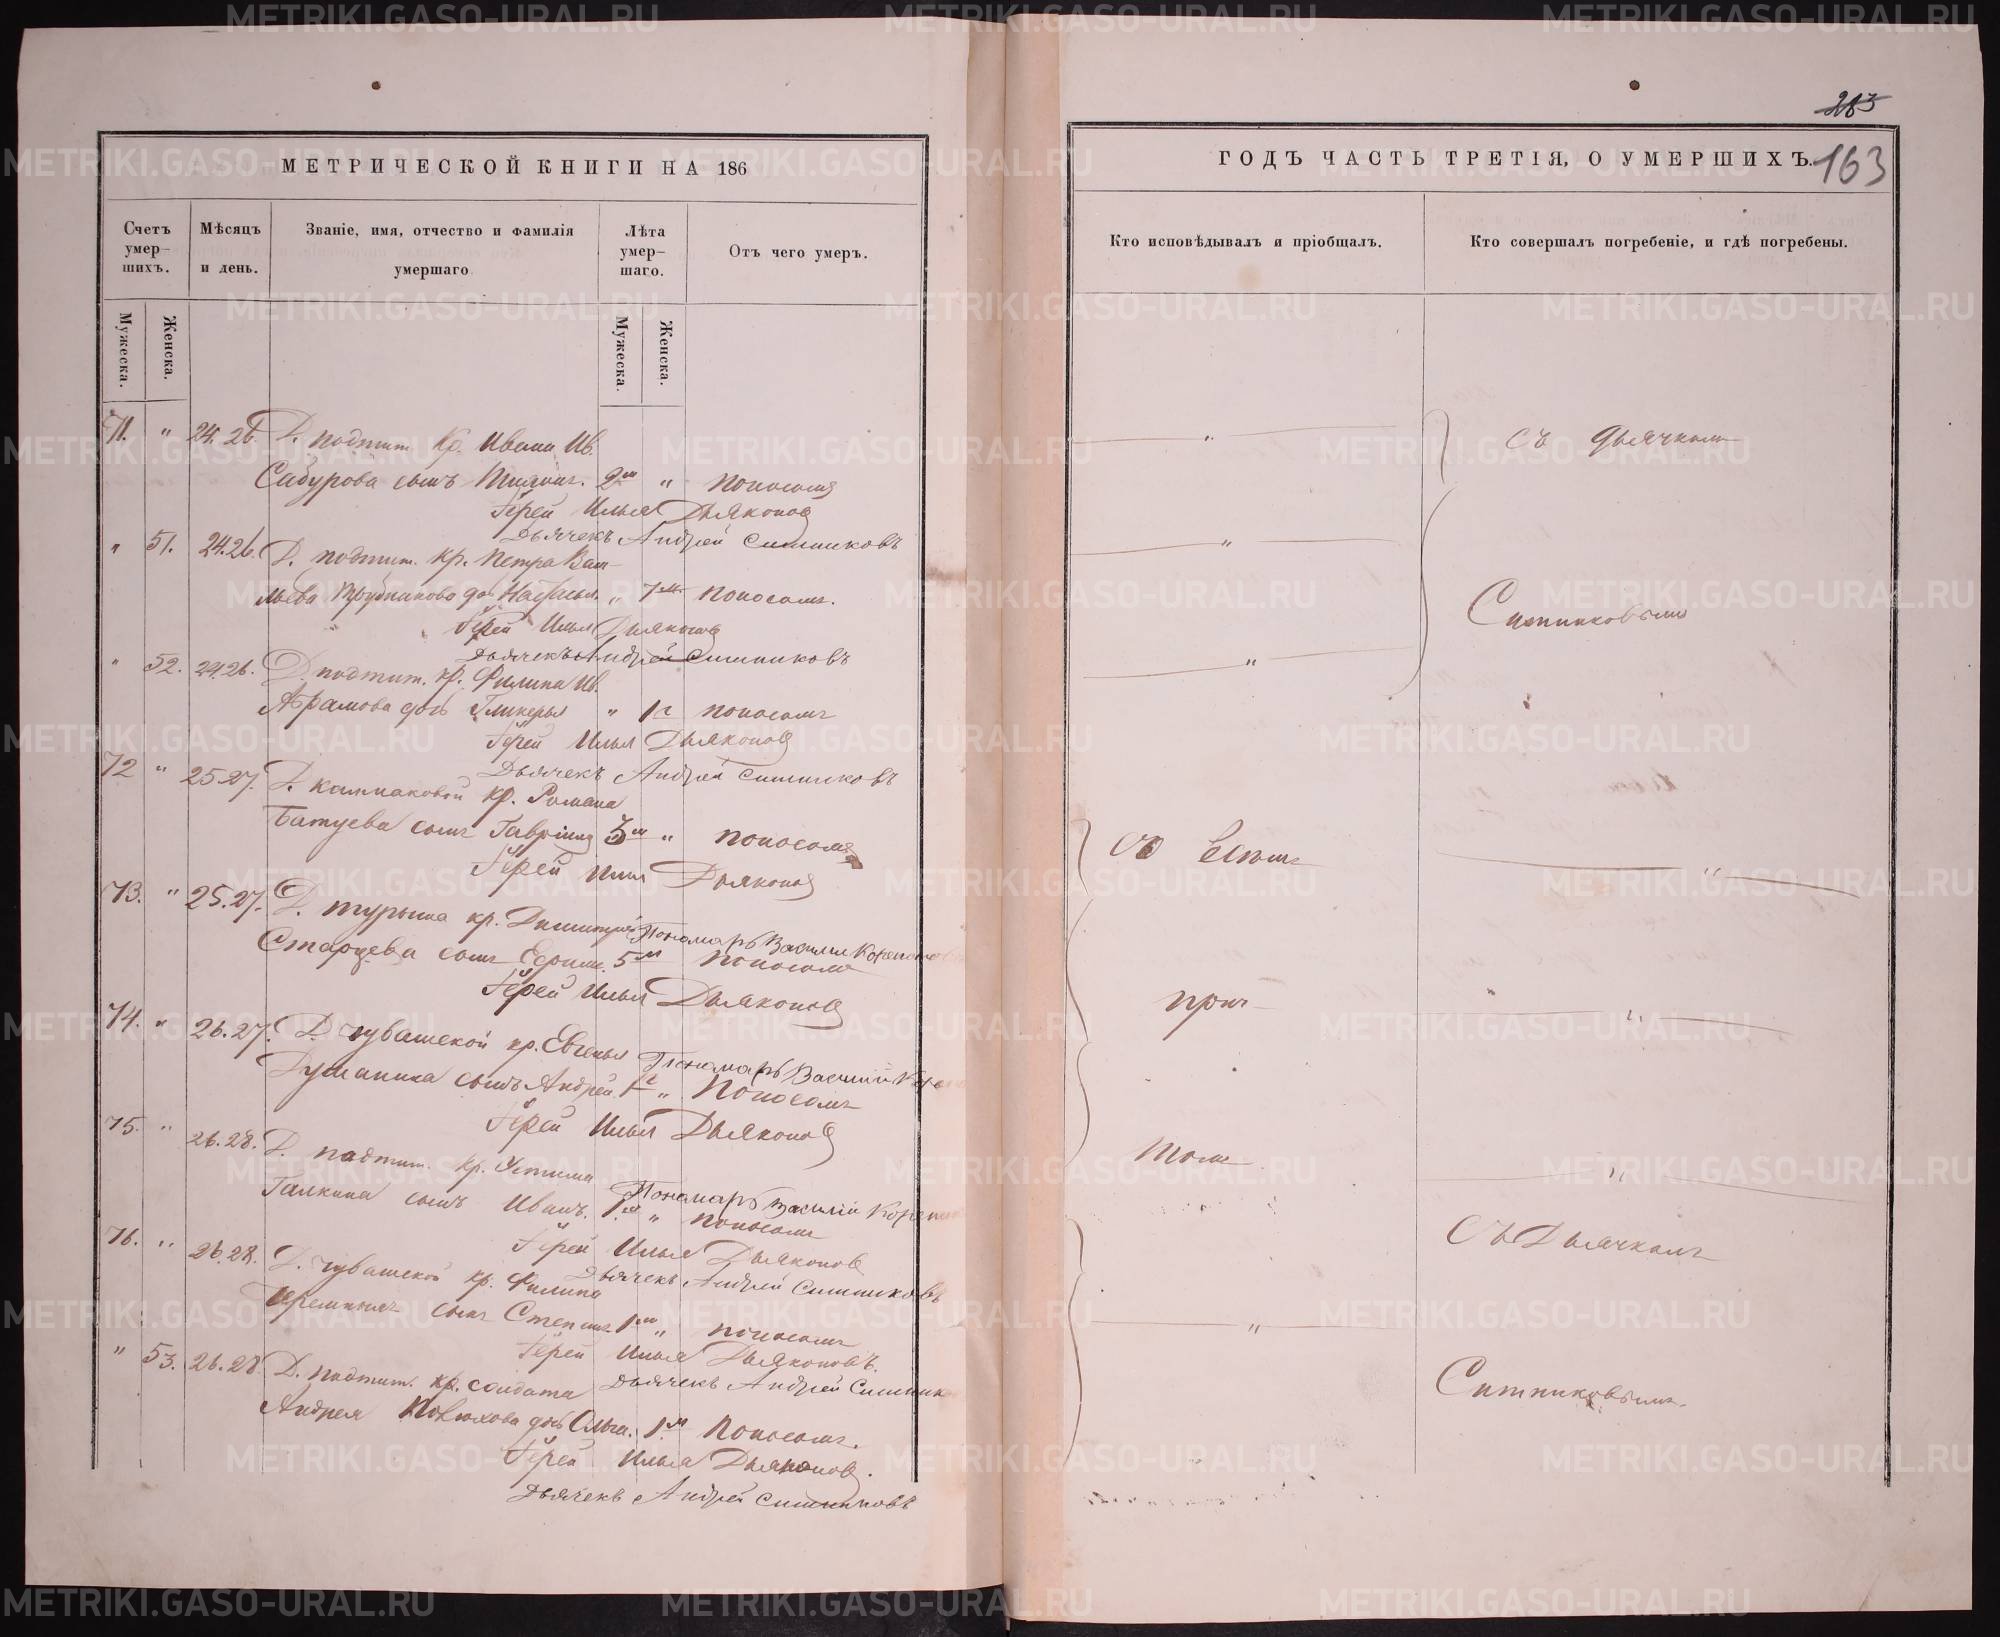 283
163
МЕТРИЧЕСКОЙ КНИГИ НА 186
ГОДЪ ЧАСТЬ ТРЕТІЯ, О УМЕРШИХЪ.
Счетъ умер-шихъ.
Мѣсяцъ и день.
Званіе, имя, отчество и фамилія умершаго
Лѣта умер-шаго.
Отъ чего умеръ.
Кто исповѣдывалъ и пріобщалъ.
Кто совершалъ погребеніе, и гдѣ погребены.
Мужеска.
Женска.
Мужеска.
Женска.
71. " 24. 26. Д. подтит. Кр. Ивана Ив.
Сабурова сынъ 2м " поносомъ
Іерей Илья Дьяконов
Дьячекъ Андрей Ситниковъ
" 51. 24.26. Д. подтит. кр. Петра Васи-
льева дочь Настасья " 7м. поносомъ.
Іерей Илья Дьяконов
Дьячекъ Андрей Ситниковъ
" 52. 24.26. Д. подтит. кр. Филипа Ив.
Абрамова дочь Гликерья " 1г поносомъ
Іерей Илья Дьяконов
Дьячекъ Андрей Ситниковъ
72 " 25.27. Д. калмаковой кр. Романа
Батуева сынъ Гавріилъ 3м " поносомъ
Іерей Илья Дьяконов
73. " 25.27. Д. турыша кр. Димитрія
Пономарь Василій
Старцева сынъ 5м поносомъ
Іерей Илья Дьяконов
74. " 26.27. Д. чувашекой кр. Евгенья
Пономарь Василій
сынъ Андрей 1г " Поносомъ
Іерей Илья Дьяконов
75. " 26.28. Д. падтит. кр. Устина
Пономарь Василій
Галкина сынъ Иванъ. 1м " поносомъ
Іерей Илья Дьяконов
Дьячекъ Андрей Ситниковъ
76. " 26.28. Д. чувашекой кр. Филипа
сынъ Степанъ 1м " поносомъ
Іерей Илья Дьяконовъ.
Дьячекъ Андрей Ситник
" 53. 26.28 Д. падтит. кр. солдата
Андрея дочь Ольга. 1м Поносомъ.
Іерей Илья Дьяконов.
Дьячекъ Андрей Ситниковъ
"
съ дьячкомъ
"
Ситниковымъ
"
"
"
тоже
"
Съ Дьячкомъ
"
Ситниковымъ.
METRIKI.GASO-URAL.RU